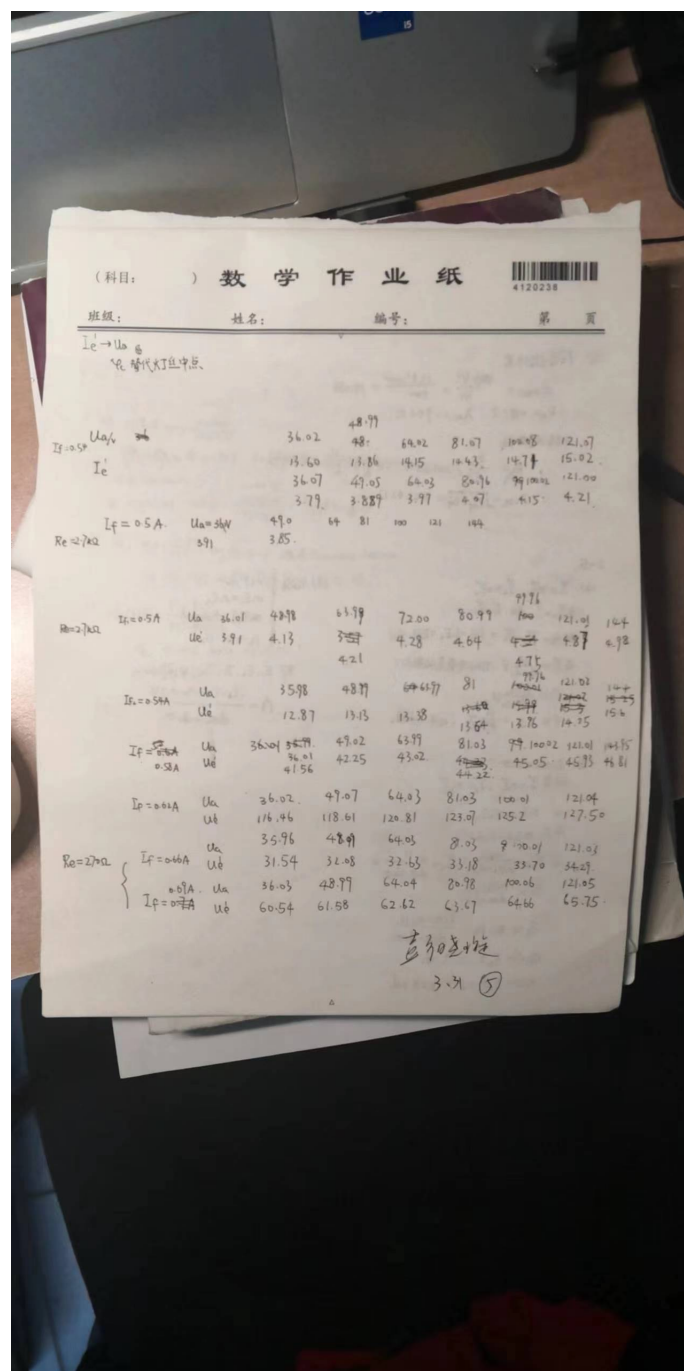 i5
（科目：　　　）数 学 作 业 纸
4120238
班级：　　　姓名：　　　编号：　　　第　页
Ie' → Ua
替代灯丝中点、
48.99
Ua/v 36.02 48. 64.02 81.07 100.08 121.07
If=0.54
Ie' 13.60 13.86 14.15 14.43 14.71 15.02
36.07 49.05 64.03 80.96 99 100.02 121.00
3.79 3.889 3.97 4.07 4.15 4.21
If = 0.5A. Ua=36V 49.0 64 81 100 121 144
Re=2.7kΩ 3.91 3.85
99.96
Re=2.7kΩ If=0.5A Ua 36.01 48.98 63.99 72.00 80.99 100 121.01 144
Ue' 3.91 4.13 4.28 4.64 4.87 4.98
4.21 4.75
If=0.54A Ua 35.98 48.99 63.97 81 99.96 121.03 144
Ue' 12.87 13.13 13.38 13.64 13.96 14.25 15.6
If=0.58A Ua 36.01 49.02 63.99 81.03 99.100.02 121.01 143.95
Ue' 36.01 42.25 43.02 45.05 45.93 46.81
41.56 44.22
If=0.62A Ua 36.02 49.07 64.03 81.03 100.01 121.04
Ue' 116.46 118.61 120.81 123.07 125.2 127.50
Ua 35.96 48.99 64.03 81.03 100.01 121.03
Re=270Ω If=0.66A Ue' 31.54 32.08 32.63 33.18 33.70 34.29
Ua 36.03 48.99 64.04 80.98 100.06 121.05
If= Ue' 60.54 61.58 62.62 63.67 64.66 65.75
3.31 ⑤